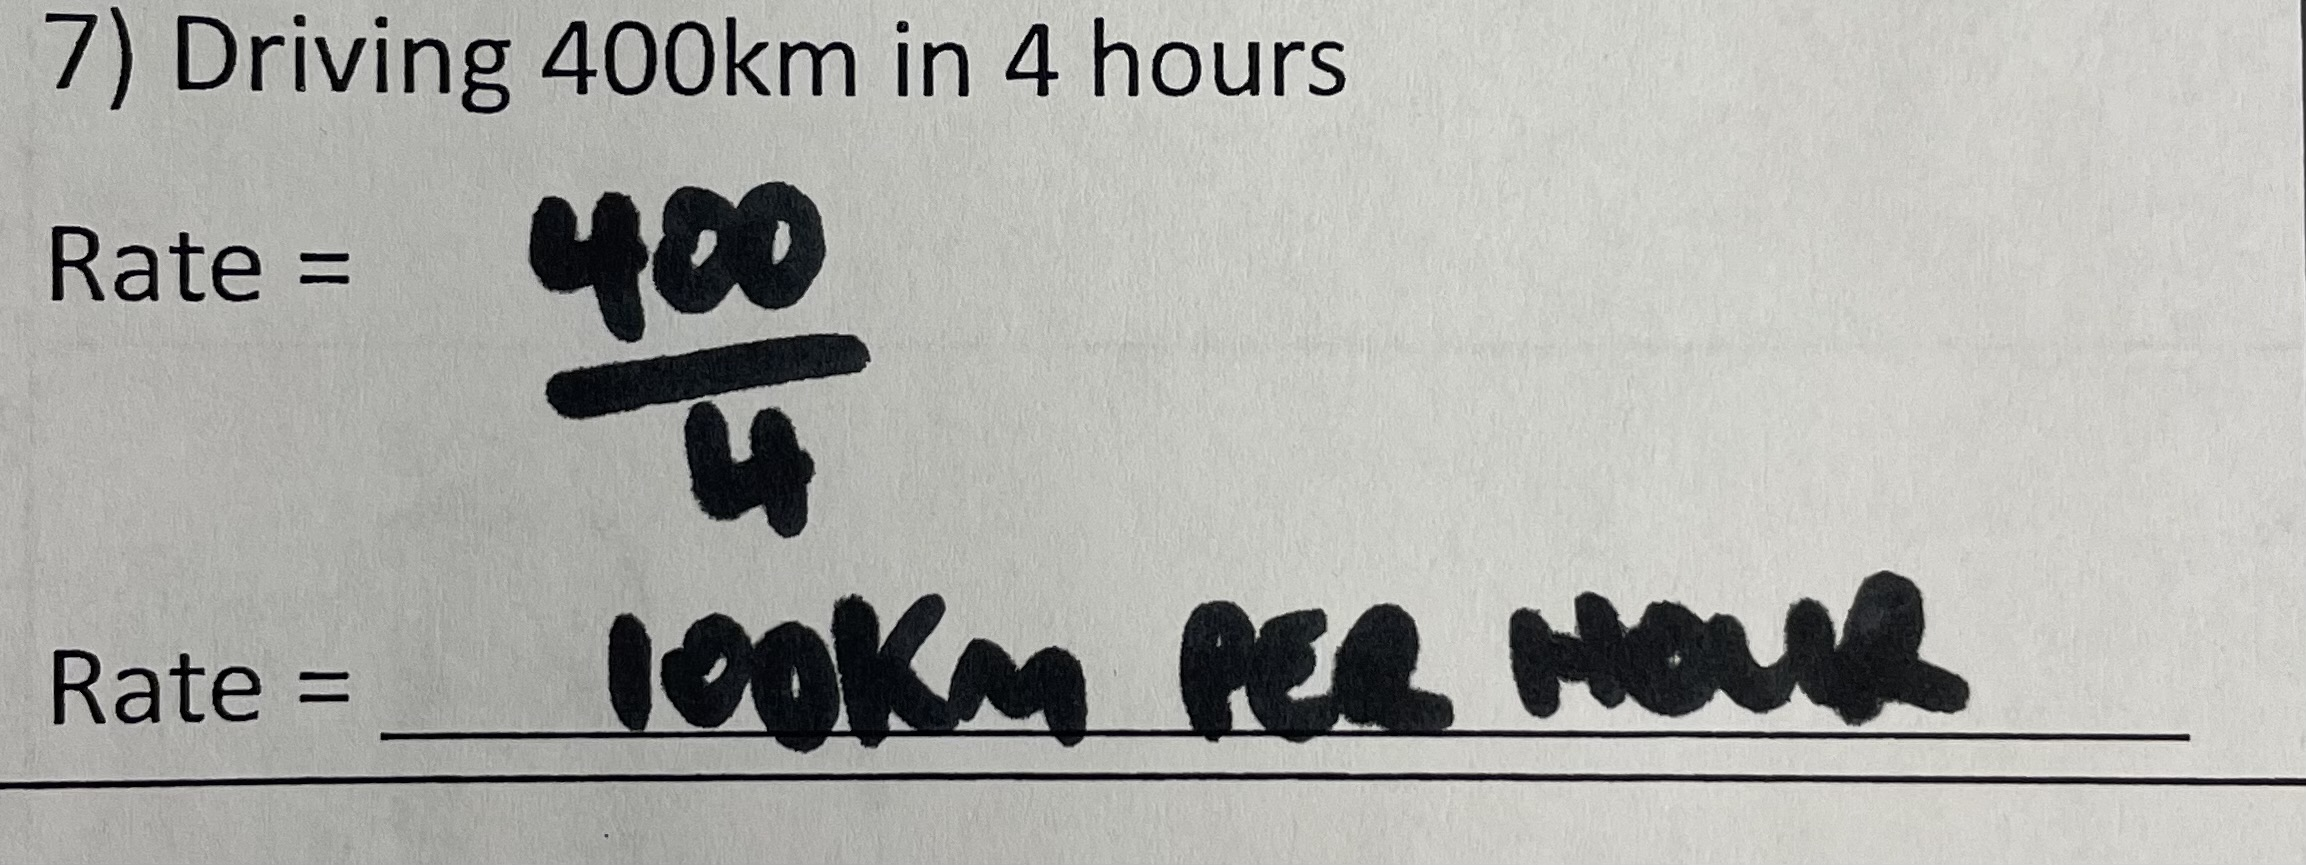 7) Driving 400km in 4 hours
Rate = 400
4
Rate = 100Km PER HOUR